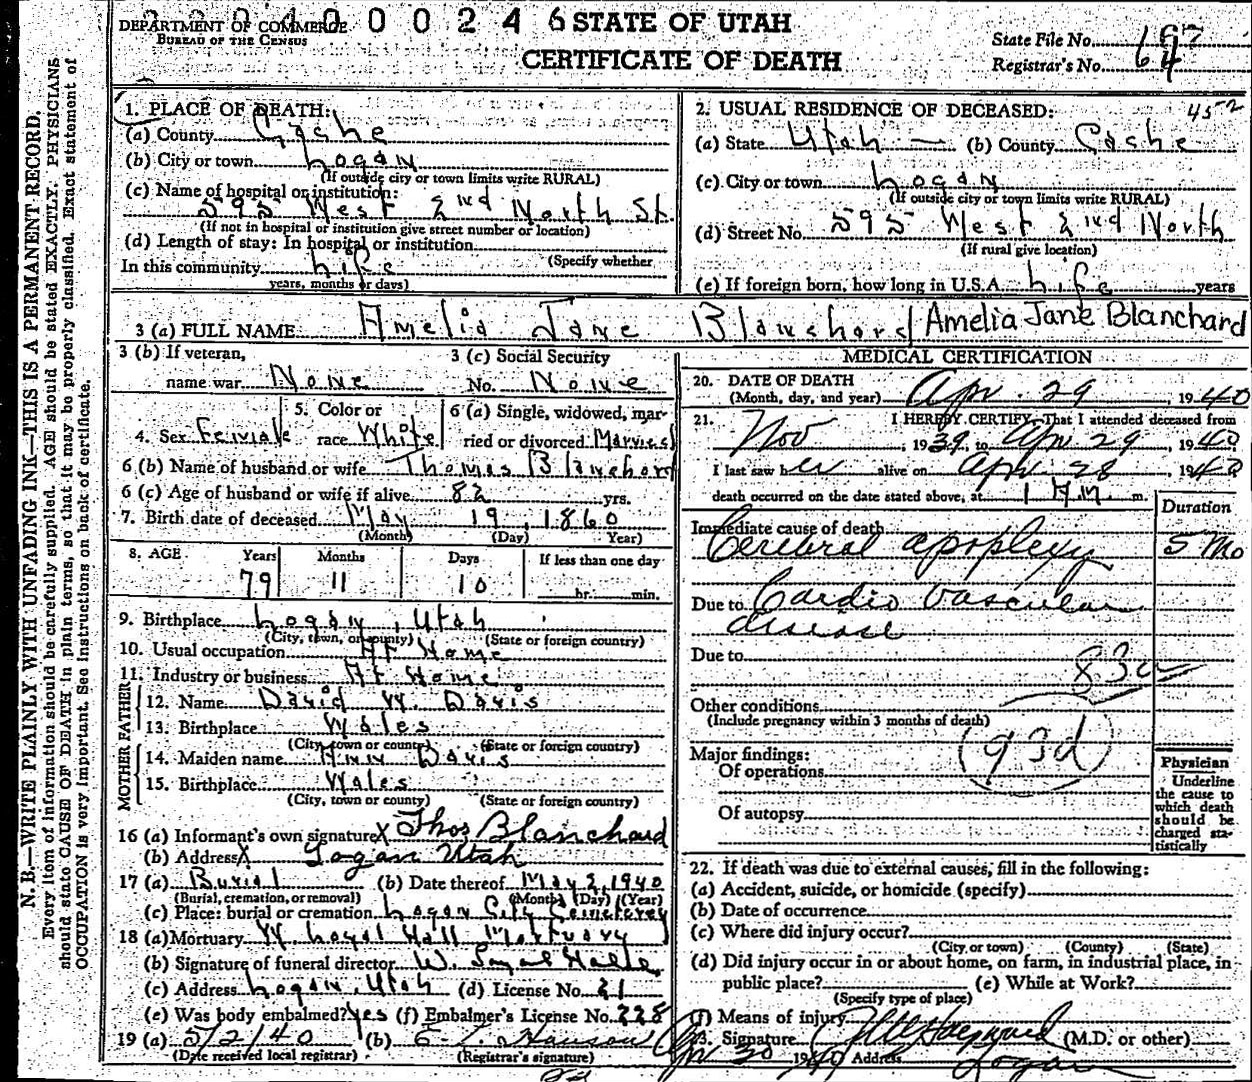 2 0 0 4 0 0 0 2 4 6
DEPARTMENT OF COMMERCE
BUREAU OF THE CENSUS
STATE OF UTAH
CERTIFICATE OF DEATH
State File No.
Registrar's No. 64
N. B.—WRITE PLAINLY WITH UNFADING INK—THIS IS A PERMANENT RECORD.
Every item of information should be carefully supplied. AGE should be stated EXACTLY. PHYSICIANS
should state CAUSE OF DEATH in plain terms, so that it may be properly classified. Exact statement of
OCCUPATION is very important. See instructions on back of certificate.
1. PLACE OF DEATH:
(a) County Cache
(b) City or town Logan
(If outside city or town limits write RURAL)
(c) Name of hospital or institution:
595 West 2nd North St.
(If not in hospital or institution give street number or location)
(d) Length of stay: In hospital or institution
(Specify whether
In this community Life
years, months or days)
2. USUAL RESIDENCE OF DECEASED: 452
(a) State Utah (b) County Cache
(c) City or town Logan
(If outside city or town limits write RURAL)
(d) Street No. 595 West 2nd North
(If rural give location)
(e) If foreign born, how long in U.S.A. Life years
3 (a) FULL NAME Amelia Jane Blanchard Amelia Jane Blanchard
3 (b) If veteran,
name war None
3 (c) Social Security
No. None
4. Sex Female
5. Color or
race White
6 (a) Single, widowed, mar-
ried or divorced Married
6 (b) Name of husband or wife Thomas Blanchard
6 (c) Age of husband or wife if alive 82 yrs.
7. Birth date of deceased May 19, 1860
(Month) (Day) Year)
8. AGE Years Months Days If less than one day
79 11 10 hr. min.
9. Birthplace Logan, Utah
(City, town, or county) (State or foreign country)
10. Usual occupation At Home
11. Industry or business At Home
FATHER
12. Name David W. Davis
13. Birthplace Wales
(City, town or county) (State or foreign country)
MOTHER
14. Maiden name Ann Davis
15. Birthplace Wales
(City, town or county) (State or foreign country)
16 (a) Informant's own signature X Thos Blanchard
(b) Address X Logan Utah
17 (a) Burial (b) Date thereof May 2, 1940
(Burial, cremation, or removal) (Month) (Day) (Year)
(c) Place: burial or cremation Logan City Cemetery
18 (a) Mortuary W. Loyal Hall Mortuary
(b) Signature of funeral director W. Loyal Hall
(c) Address Logan, Utah (d) License No. 21
(e) Was body embalmed? Yes (f) Embalmer's License No. 228
19 (a) 5/2/40 (b) Hanson
(Date received local registrar) (Registrar's signature)
MEDICAL CERTIFICATION
20. DATE OF DEATH
(Month, day, and year) Apr. 29, 1940
21. I HEREBY CERTIFY, That I attended deceased from
Nov, 1939, to Apr 29, 1940
I last saw her alive on Apr 28 1940
death occurred on the date stated above, at 1 A.M. m.
Duration
Immediate cause of death
Cerebral apoplexy 5 Mo
Due to Cardio Vascular
disease
Due to
83a
Other conditions
(Include pregnancy within 3 months of death)
(93d)
Major findings:
Of operations
Of autopsy
Physician
Underline
the cause to
which death
should be
charged sta-
tistically
22. If death was due to external causes, fill in the following:
(a) Accident, suicide, or homicide (specify)
(b) Date of occurrence
(c) Where did injury occur?
(City or town) (County) (State)
(d) Did injury occur in or about home, on farm, in industrial place, in
public place? (e) While at Work?
(Specify type of place)
(f) Means of injury
23. Signature Hayward (M.D. or other)
Apr 30 1940 Address Logan